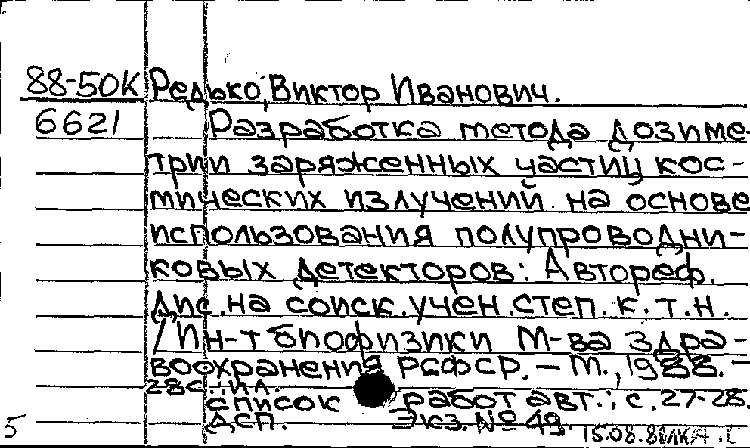 88-50К Редько, Виктор Иванович.
6621 Разработка метода дозиме-
трии заряженных частиц кос-
мических излучений на основе
использования полупроводни-
ковых детекторов: Автореф.
дис. на соиск. учен. степ. к.т.н.
/Ин-т биофизики М-ва здра-
воохранения РСФСР. – М., 1988. –
28с.: ил.
список работ авт.: с. 27-28.
ДСП. Экз. № 49.
5 15.08.88